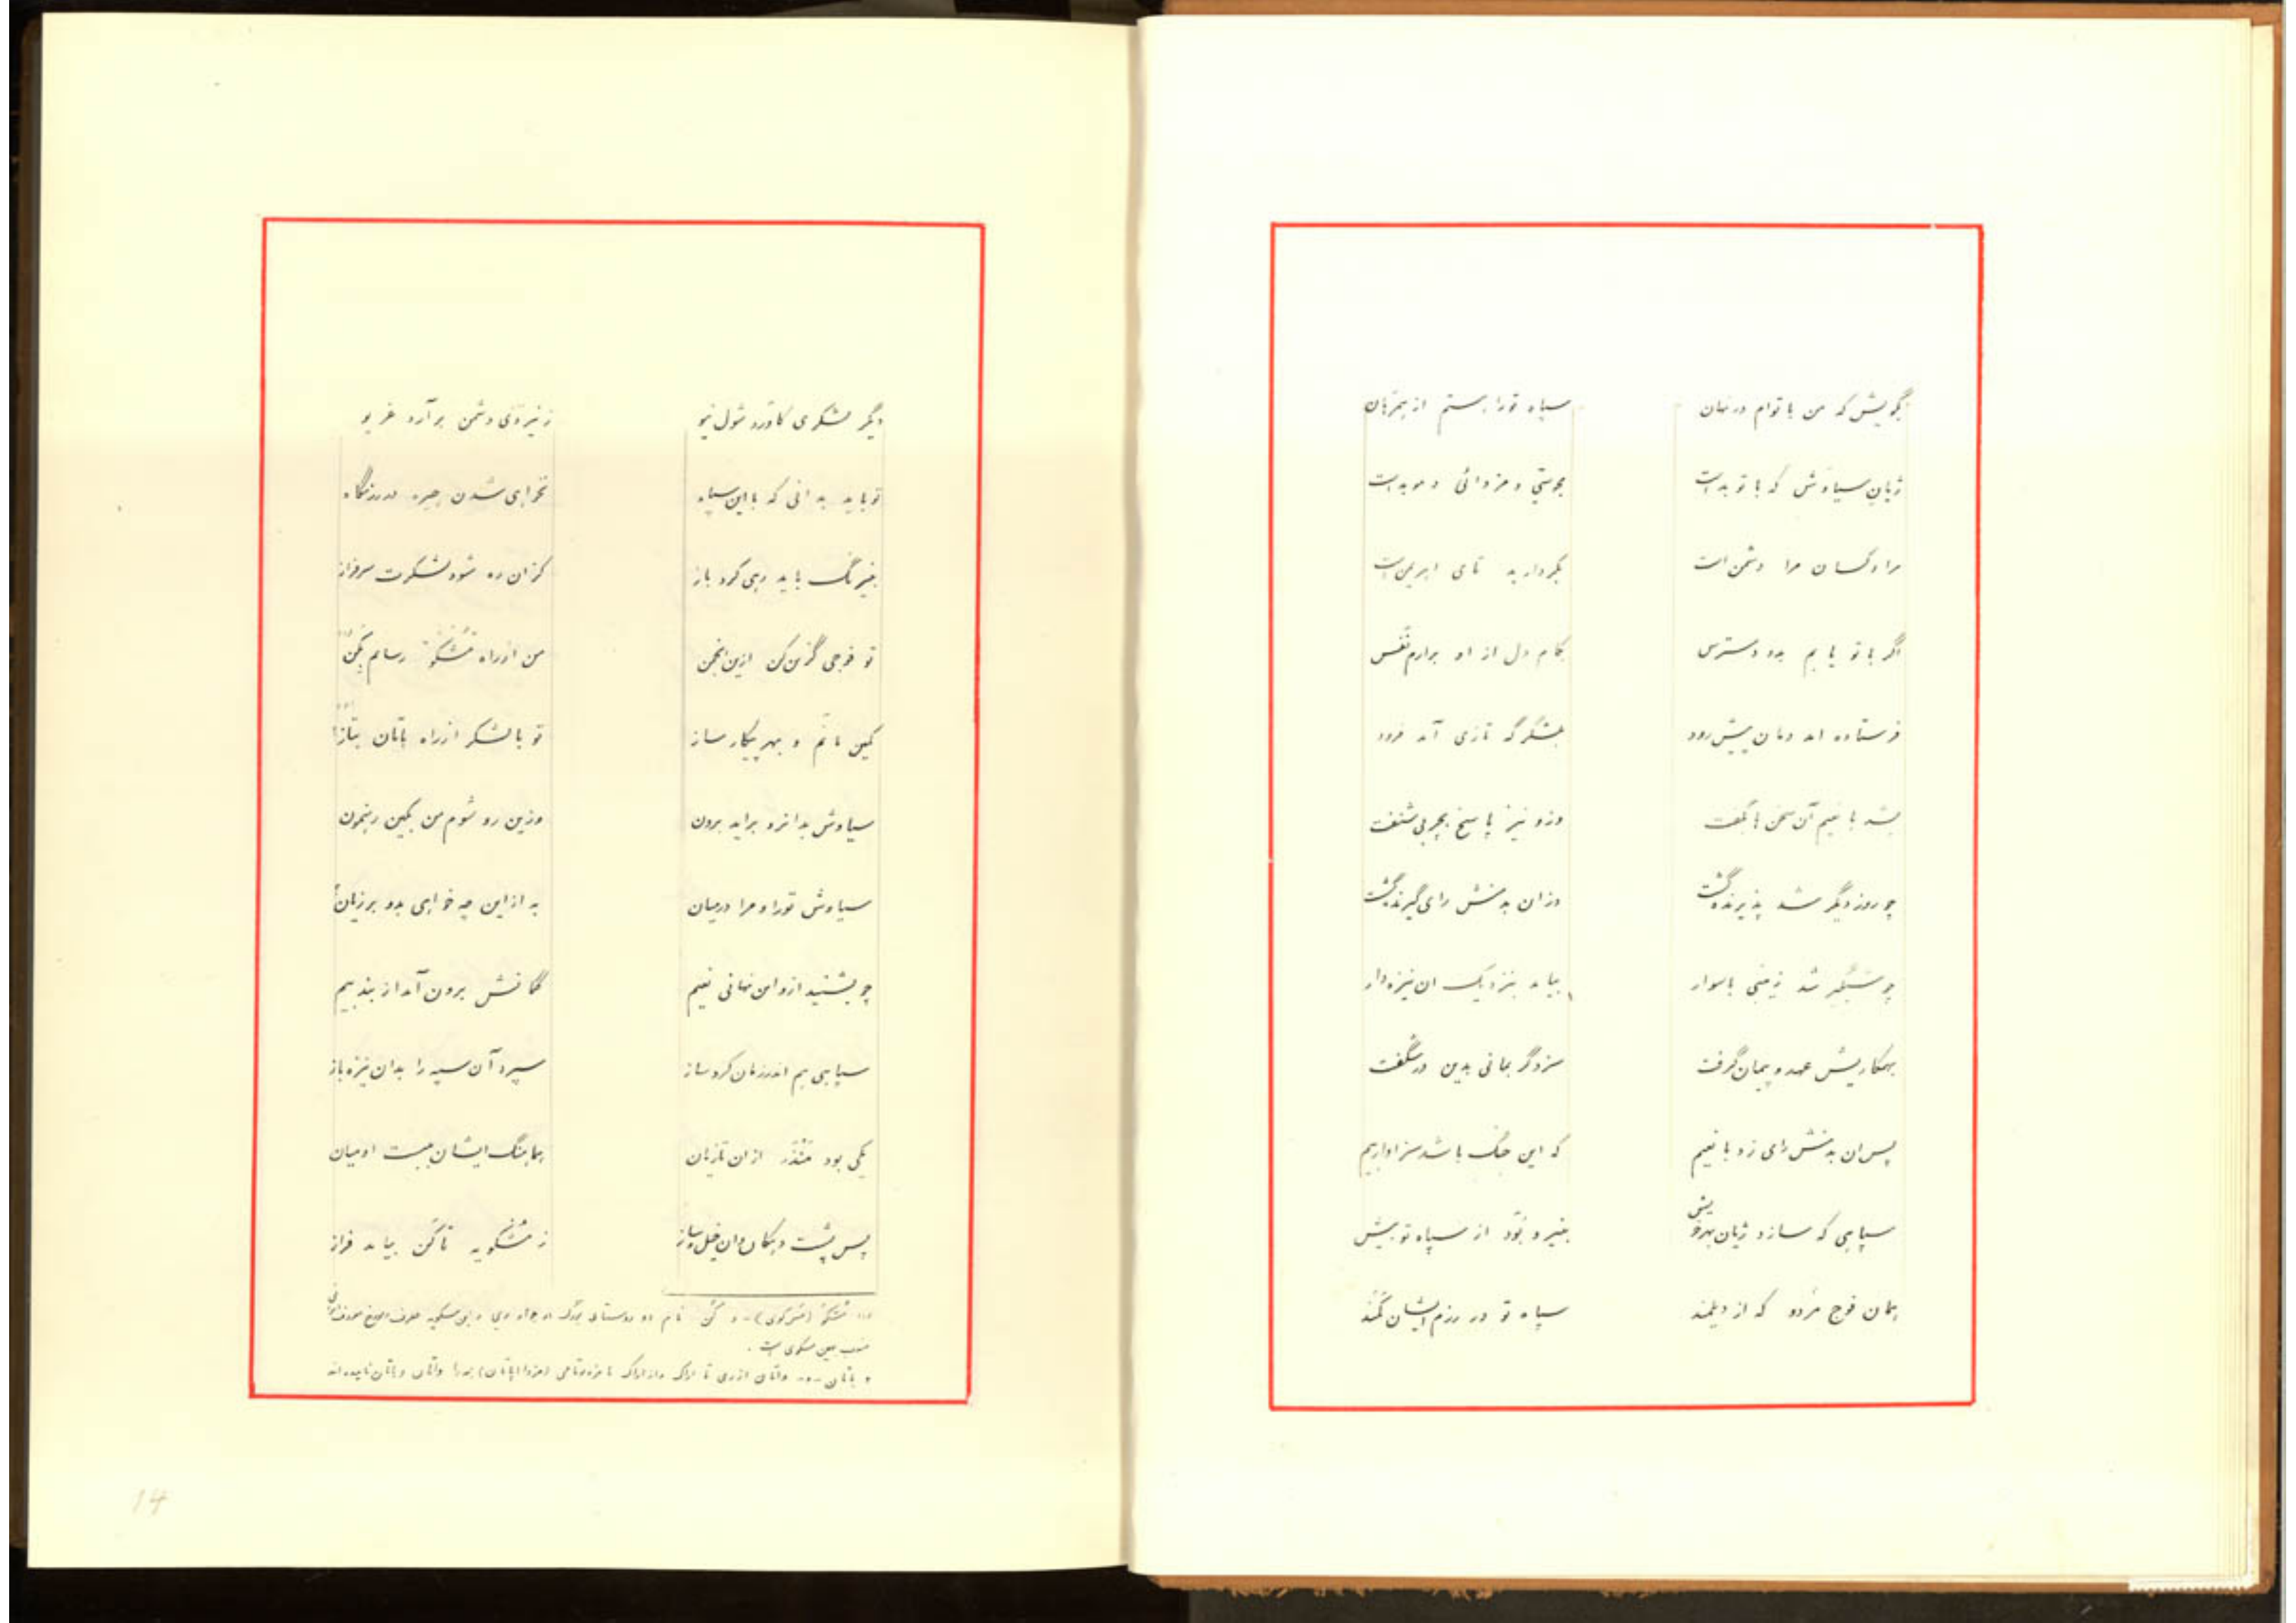 بگویش که من با توام در نهان سپاه تو را رستم از بهر تان
ژیان سیاوش که با تو بد است مجوسی و مزدائی و موبد است
مرا و کسان مرا دشمن است بکردار بد تای اهریمن است
اگر با تو یابم بدو دسترس بکام دل از او برآرم نفس
فرستاده آمد دمان پیش رود بلشکرگه تازی آمد فرود
بشد با نعیم آن سخن ها بگفت وزو نیز پاسخ بچربی شنفت
چو روز دگر شد پذیرنده گشت وزان بدمنش رای گیرنده گشت
چو شبگیر شد زینبی با سوار بیامد بنزدیک آن نیزه دار
بهمکاریش عهد و پیمان گرفت سزد گر بمانی بدین در شگفت
پس آن بدمنش رای زد با نعیم که این جنگ باشد سزاوار بیم
سپاهی که سازد ژیان بهر خویش بنیرو بود از سپاه تو بیش
همان فوج مردو که از دیلمند سپاه تو در رزم ایشان کمند
دیگر لشکری کآورد شول نیو ز نیروی دشمن برآرد غریو
تو باید بدانی که با این سپاه نخواهی شدن چیره در رزمگاه
بنیرنگ باید رهی کرد باز کزان ره شود لشکرت سرفراز
تو فوجی گزین کن ازین انجمن من از راه مشکو رسانم بکن (۱)
کمین مانم و بهر پیکار ساز تو با لشکر از راه پاتان بتاز (۲)
سیاوش بدانرو برآید برون وزین رو شوم من بکین رهنمون
سیاوش تو را و مرا در میان به از این چه خواهی بدو بر زیان
چو بشنید ازو این نهانی نعیم گمانش برون آمد از بند بیم
سپاهی هم اندر زمان کرد ساز سپرد آن سپه را بدان نیزه باز
یکی بود منذر از آن تازیان بهماهنگ ایشان ببست او میان
پس پشت دهکان و آن خیل و ساز ز مشکویه تا کن بیامد فراز
(۱) مشکو (مشکوی) - و کن نام دو روستای بزرگ در جاده ری و ابن مسکویه مورخ معروف ایرانی
منسوب بهمین مشکوی است .
و پاتان - و - واتان از ری تا اراک و از اراک تا